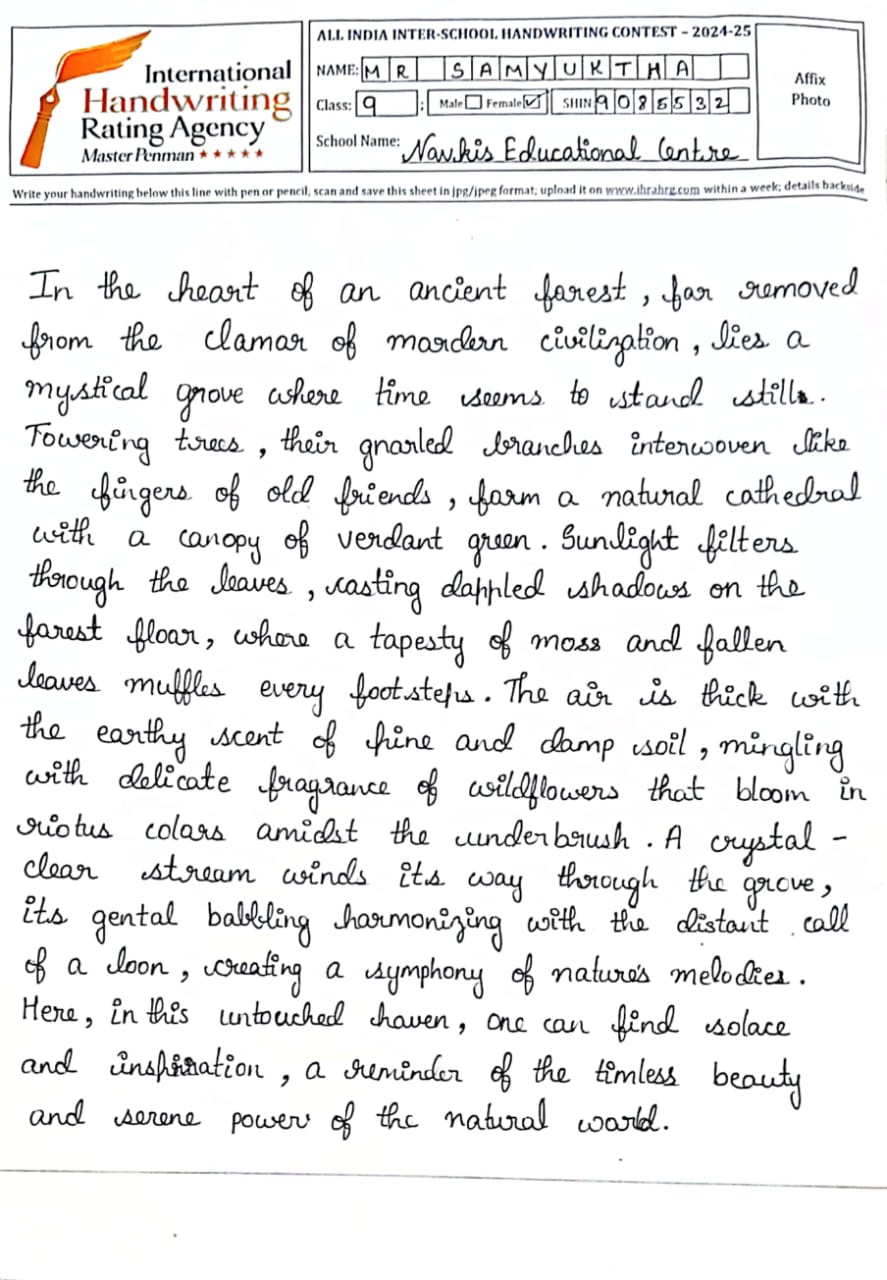 International
Handwriting
Rating Agency
Master Penman ★★★★★
ALL INDIA INTER-SCHOOL HANDWRITING CONTEST – 2024-25
NAME: M R SAMYUKTHA
Class: 9 : Male Female ✓ SHIN 9085532
School Name: Navkis Educational Centre
Affix
Photo
Write your handwriting below this line with pen or pencil, scan and save this sheet in jpg/jpeg format; upload it on www.ihrahrg.com within a week; details backside
In the heart of an ancient forest, far removed
from the clamar of mordern civilization, lies a
mystical grove where time seems to stand still.
Towering trees, their gnarled branches interwoven like
the fingers of old friends, farm a natural cathedral
with a canopy of verdant green. Sunlight filters
through the leaves, casting dappled shadows on the
farest floar, where a tapesty of moss and fallen
leaves muffles every footsteps. The air is thick with
the earthy scent of pine and damp soil, mingling
with delicate fragrance of wildflowers that bloom in
riotus colars amidst the underbrush. A crystal -
clear stream winds its way through the grove,
its gental babbling harmonizing with the distant call
of a loon, creating a symphony of nature's melodies.
Here, in this untouched haven, one can find solace
and inspiration, a reminder of the timless beauty
and serene power of the natural warld.